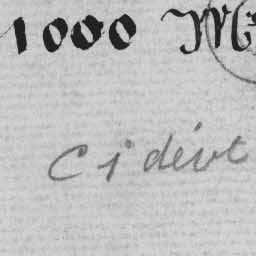 1000 M
Cidevt